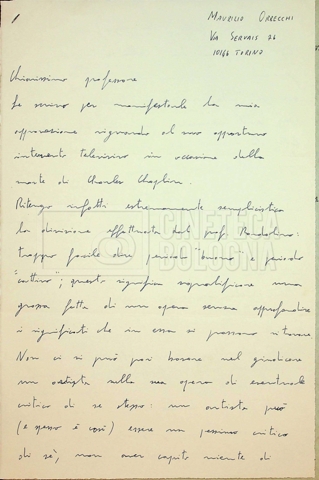 1
MAURILIO ORRECCHI
VIA SERVAIS 76
10146 TORINO
Chiarissimo professore
Le scrivo per manifestarle la mia
approvazione riguardo al suo opportuno
intervento televisivo in occasione della
morte di Charles Chaplin.
Ritengo infatti estremamente semplicistica
la divisione effettuata dal prof. Rondolino:
troppo facile dire periodo "buono" e periodo
"cattivo"; questo significa squalificare una
grossa fetta di un'opera senza approfondire
i significati che in essa si possono ritrovare
Non ci si può poi basare nel giudicare
un artista sulla sua opera di eventuale
critico di se stesso: un artista può
(e spesso è così) essere un pessimo critico
di sé, non aver capito niente di
CINETECA
BOLOGNA